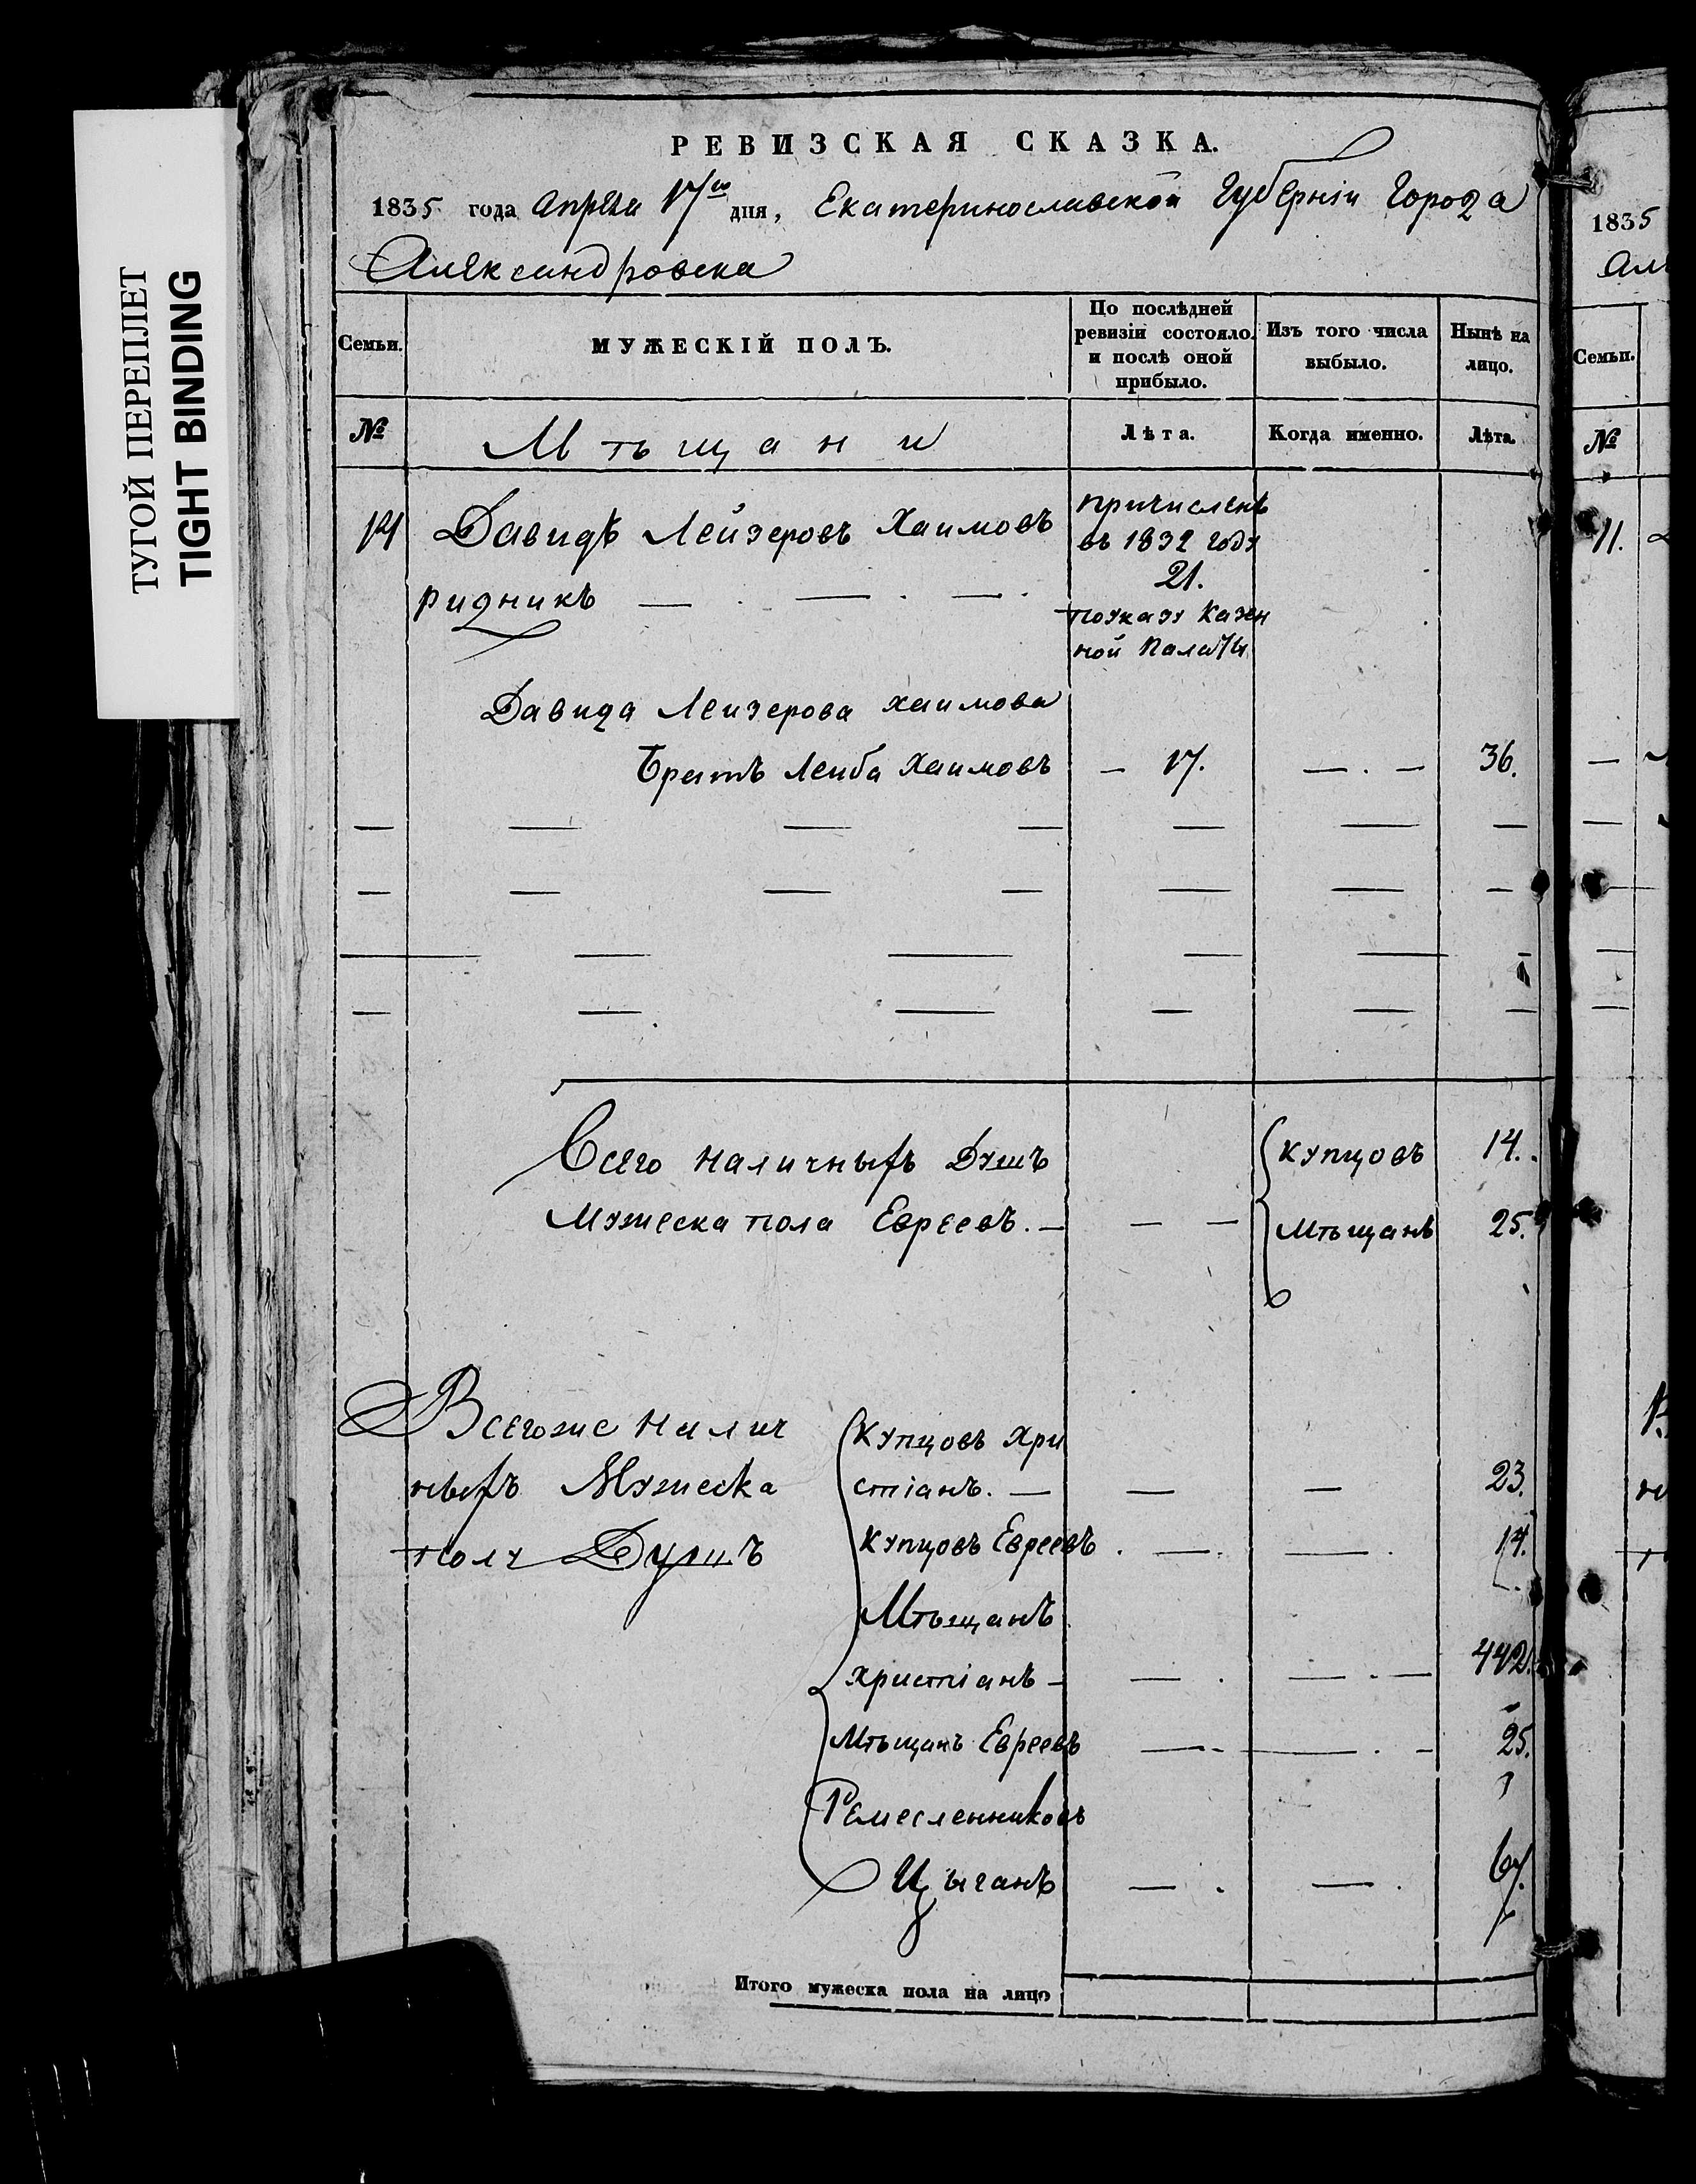 ТУГОЙ ПЕРЕПЛЕТ
TIGHT BINDING
РЕВИЗСКАЯ СКАЗКА.
1835 года Апреля 17го дня, Екатеринославской Губерніи Города
Александровска
Семьи.
МУЖЕСКІЙ ПОЛЪ.
По послѣдней ревизіи состояло и послѣ оной прибыло.
Изъ того числа выбыло.
Нынѣ на лицо.
№
Мѣщани
Лѣта.
Когда именно.
Лѣта.
Давидъ Лейзеровъ Хаимовъ
ридникъ
причисленъ
въ 1832 году
21.
по указу Казен
ной Палаты
Давида Лейзерова Хаимова
Братъ Лейба Хаимовъ — 17. — . — 36.
Всего наличныхъ Душъ
Мужеска пола Евреевъ. —
Купцовъ 14.
Мѣщанъ 25.
Всегоже Налич
ныхъ Мужеска
полу Душъ
Купцовъ Хри
стіанъ. — — — 23.
Купцовъ Евреевъ . — . — . 14.
Мѣщанъ
Христіанъ — — . — . — 442.
Мѣщанъ Евреевъ — . — . — 25.
Ремесленниковъ
Цыганъ — . — .
Итого мужеска пола на лицо
1835
Семьи.
№
11.